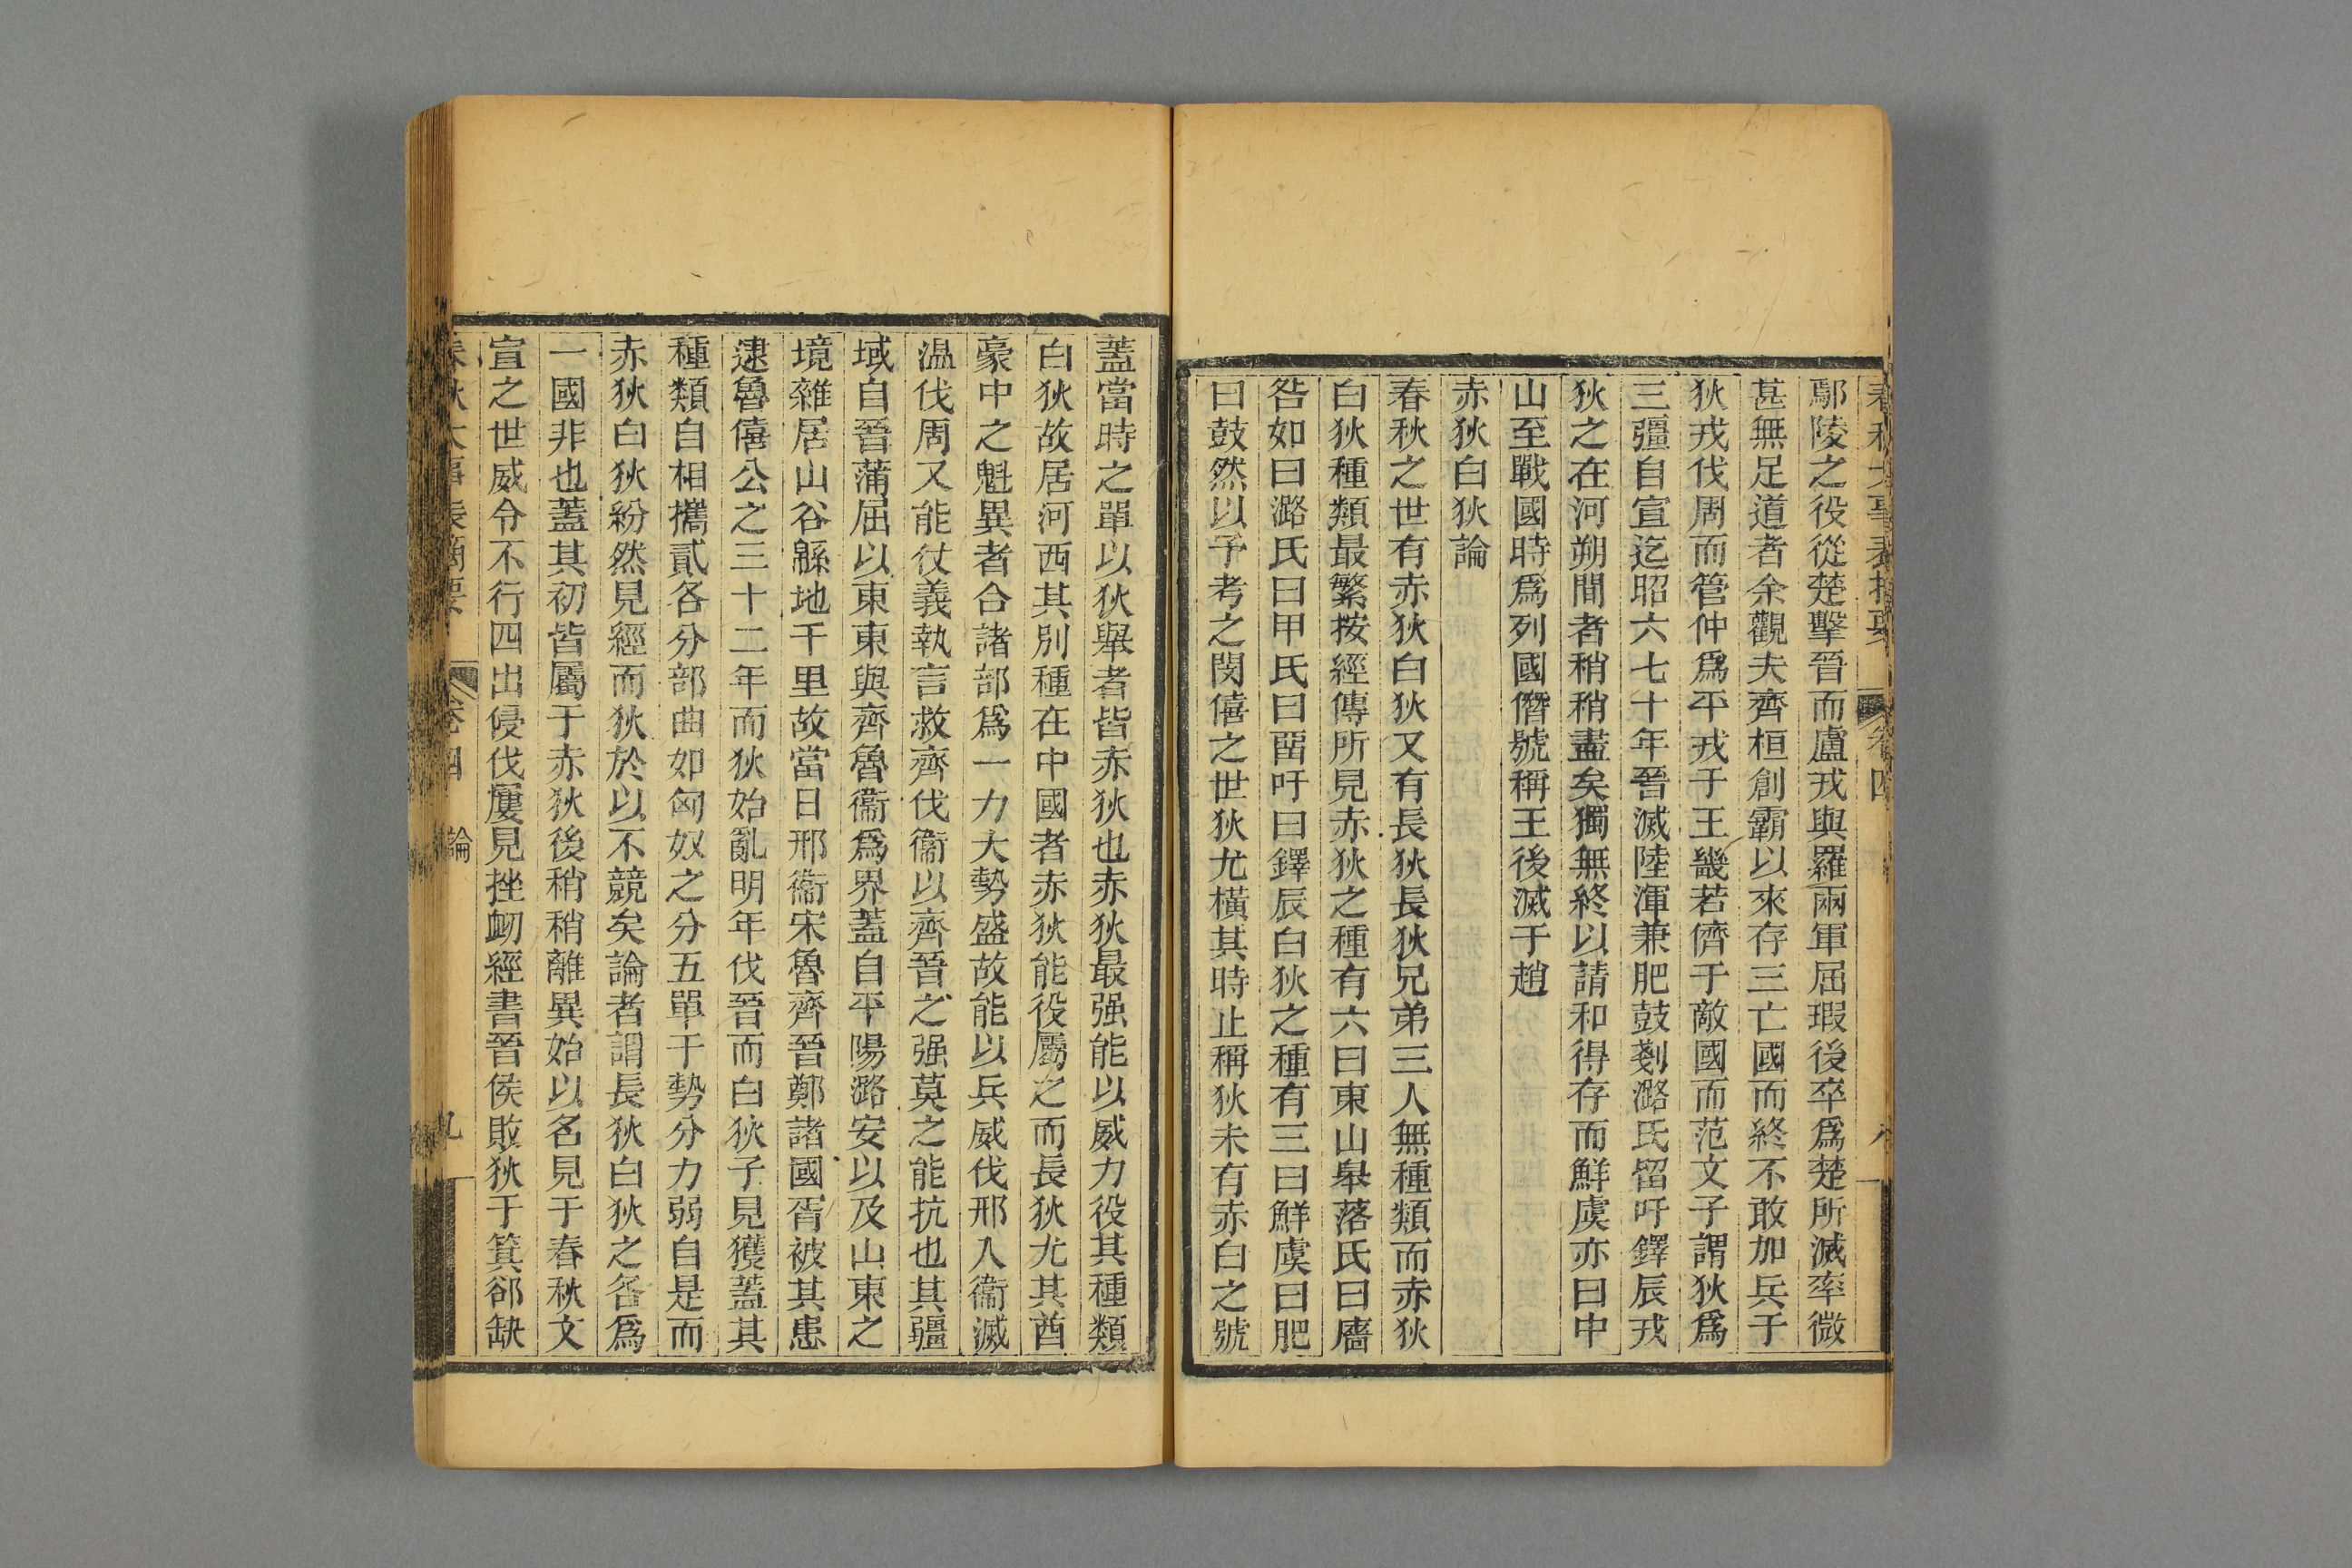 春秋大事表摘要 卷四 八
鄢陵之役從楚擊晉而盧戎與羅兩軍屈瑕後卒爲楚所滅率微
甚無足道者余觀夫齊桓創霸以來存三亡國而終不敢加兵于
狄戎伐周而管仲爲平戎于王畿若儕于敵國而范文子謂狄爲
三彊自宣迄昭六七十年晉滅陸渾兼肥鼓剗潞氏留吁鐸辰戎
狄之在河朔間者稍稍盡矣獨無終以請和得存而鮮虞亦曰中
山至戰國時爲列國僭號稱王後滅于趙
赤狄白狄論
春秋之世有赤狄白狄又有長狄長狄兄弟三人無種類而赤狄
白狄種類最繁按經傳所見赤狄之種有六曰東山皋落氏曰廧
咎如曰潞氏曰甲氏曰留吁曰鐸辰白狄之種有三曰鮮虞曰肥
曰鼓然以予考之閔僖之世狄尤橫其時止稱狄未有赤白之號
蓋當時之單以狄舉者皆赤狄也赤狄最强能以威力役其種類
白狄故居河西其別種在中國者赤狄能役屬之而長狄尤其酋
豪中之魁異者合諸部爲一力大勢盛故能以兵威伐邢入衞滅
溫伐周又能仗義執言救齊伐衞以齊晉之强莫之能抗也其疆
域自晉蒲屈以東東與齊魯衞爲界蓋自平陽潞安以及山東之
境雜居山谷緜地千里故當日邢衞宋魯齊晉鄭諸國胥被其患
逮魯僖公之三十二年而狄始亂明年伐晉而白狄子見獲蓋其
種類自相攜貳各分部曲如匈奴之分五單于勢分力弱自是而
赤狄白狄紛然見經而狄於以不競矣論者謂長狄白狄之各爲
一國非也蓋其初皆屬于赤狄後稍稍離異始以名見于春秋文
宣之世威令不行四出侵伐屢見挫衂經書晉侯敗狄于箕郤缺
春秋大事表摘要 卷四 論 九